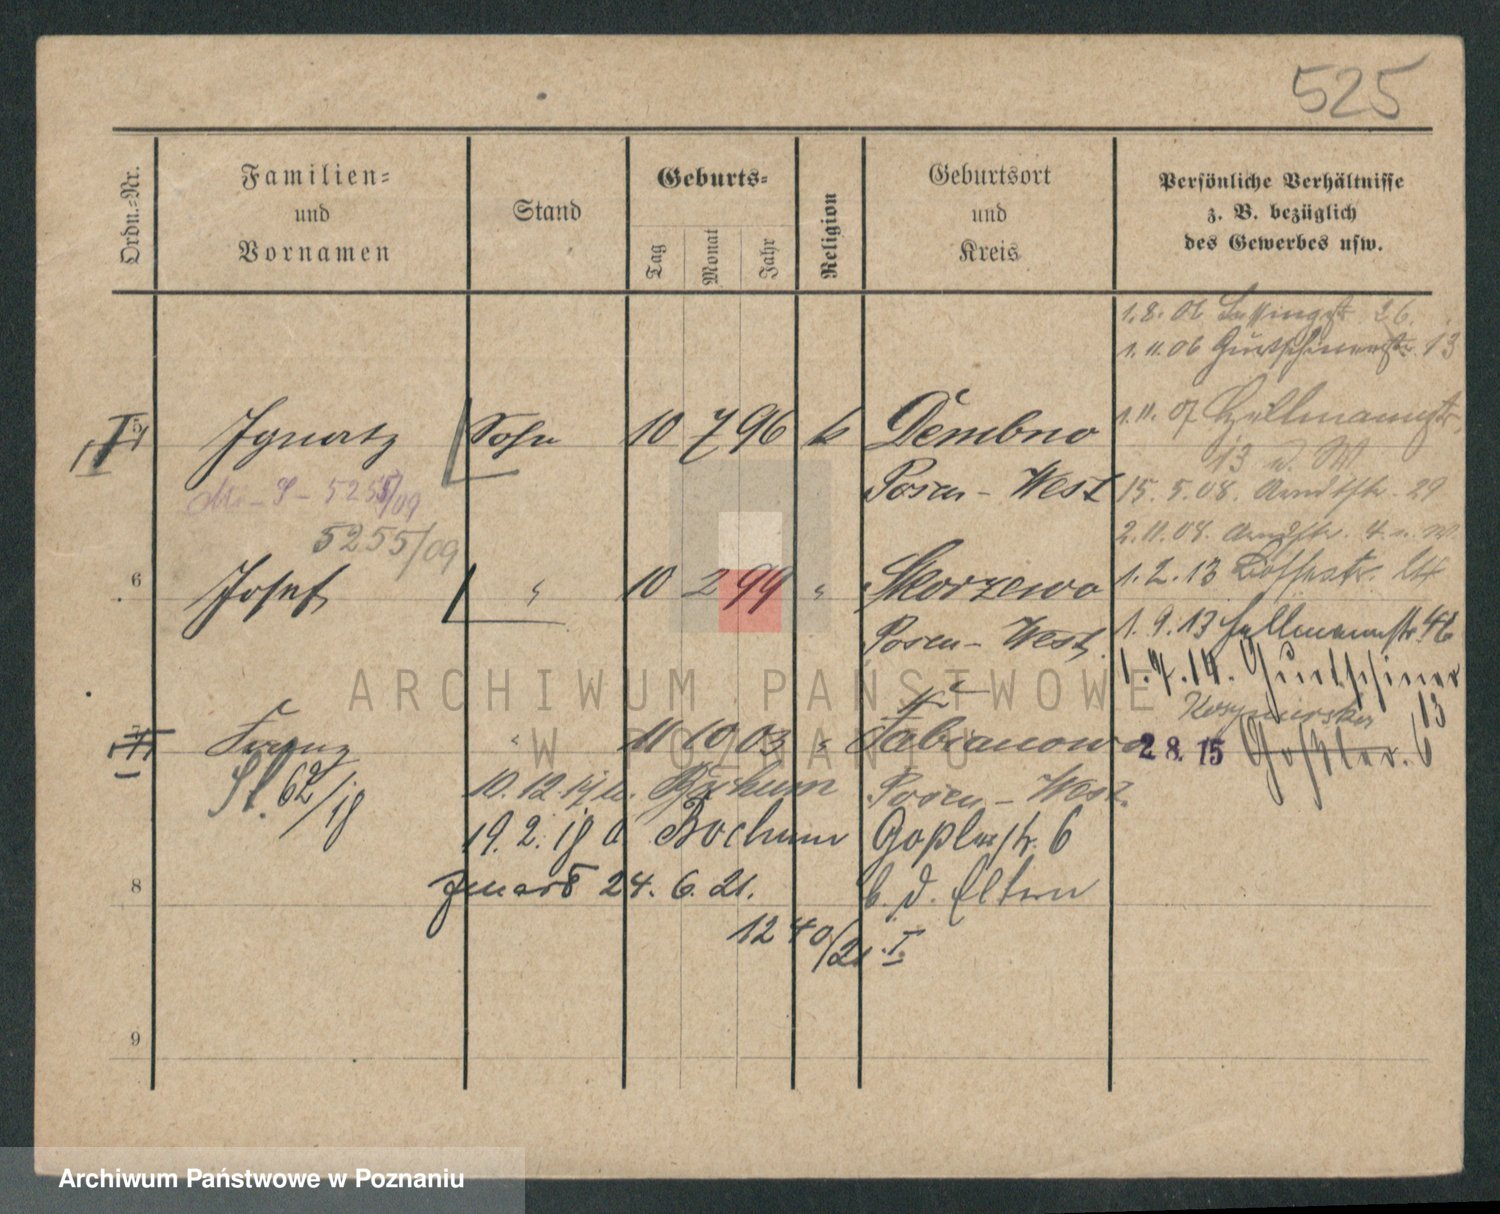 525
Ordn.-Nr.
Familien-
und
Vornamen
Stand
Geburts-
Tag
Monat
Jahr
Religion
Geburtsort
und
Kreis
Persönliche Verhältnisse
z. B. bezüglich
des Gewerbes usw.
1. 8. 06 Lessingstr. 26.
1. 11. 06 Gurtschinerstr. 13
5 Ignatz Sohn 10 7 96 k Dembno
1. 11. 07 Hellmannstr.
13
Posen - West
15. 5. 08. Arndtstr. 29
5255/09
5255/09
2. 11. 08. Arndtstr. 4
6 Josef " 10 2 99 " Skorzewo
1. 2. 13
Posen - West
1. 9. 13 Hellmannstr. 46
1. 7. 14. Gurtschiner
13
7 Franz " 11 10 03 " Fabianowo
2 8. 15 Goßler. 6
St. 62/18
10. 12. 17 Bochum
Posen - West.
19. 2. 18 Bochum Goplerstr. 6
8
24. 6. 21.
b. d. Eltern
1240/21 I.
9
ARCHIWUM PAŃSTWOWE
W POZNANIU
Archiwum Państwowe w Poznaniu